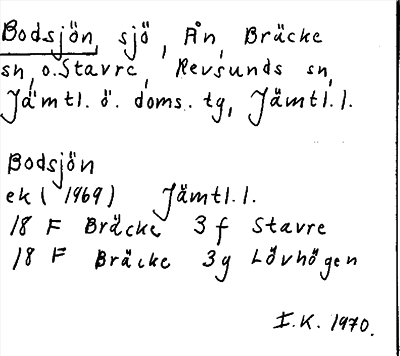 Bodsjön, sjö, Ån, Bräcke
sn, o. Stavre, Revsunds sn,
Jämtl. ö. doms. tg, Jämtl.l.
Bodsjön
ek (1969) Jämtl.l.
18 F Bräcke 3 f Stavre
18 F Bräcke 3g Lövhögen
I.K. 1970.